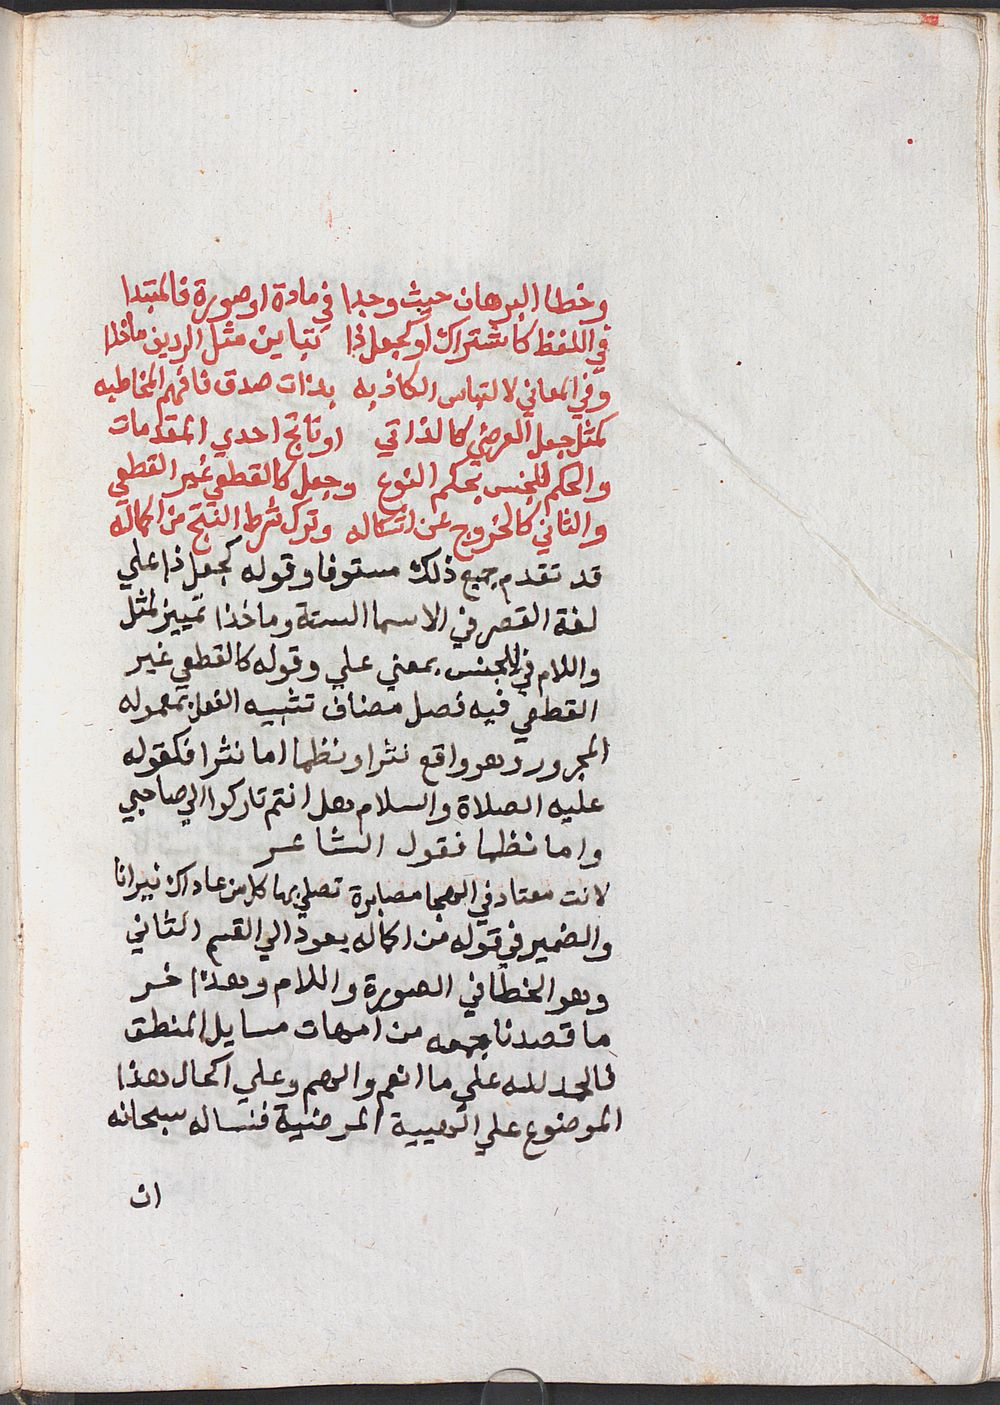 وخطا البرهان حيث وجدا في مادة او صورة فالمبتدا
في اللفظ كاشتراك او كجعل ذا تباين مثل الرديف ماخذا
وفي المعاني لالتباس الكاذبه بذات صدق فافهم المخاطبه
كمثل جعل العرضي كالذاتي او ناتج احدي المقدمات
والحكم للجنس بحكم النوع وجعل كالقطعي غير القطعي
والثاني كالخروج عن اشكاله وترك شرط النتج من اكماله
قد تقدم جميع ذلك مستوفا وقوله كجعل ذا علي
لغة القصر في الاسما الستة وماخذا تمييز لمثل
واللام في للجنس بمعني علي وقوله كالقطعي غير
القطعي فيه فصل مضاف تشبيه الفعل بمعموله
المجرور وهو واقع نثرا ونظما اما نثرا فكقوله
عليه الصلاة والسلام هل انتم تاركوا الي صاحبي
واما نظما فقول الشاعر
لانت معتاد في الهيجا مصابرة تصلي بها كل من عاداك نيرانا
والضمير في قوله من اكماله يعود الي القسم الثاني
وهو الخطا في الصورة واللام وهذا اخر
ما قصدنا جمعه من امهات مسايل المنطق
فالحمد لله علي ما انعم والهم وعلي اكمال هذا
الموضوع علي الهيية المرضية فنساله سبحانه
ان